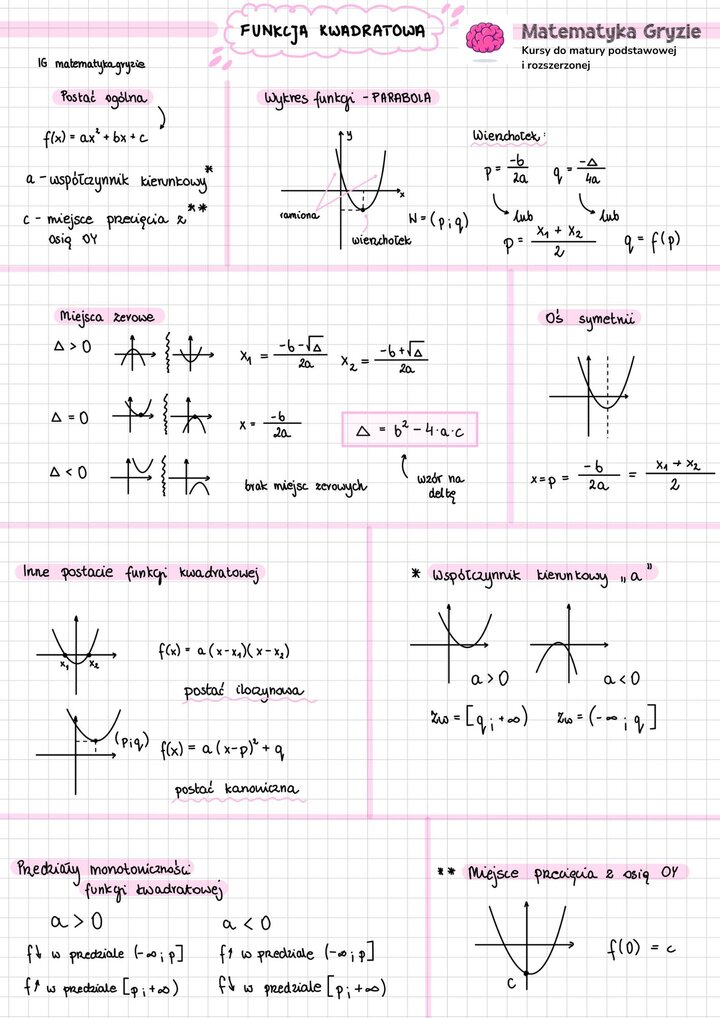 FUNKCJA KWADRATOWA
Matematyka Gryzie
Kursy do matury podstawowej
i rozszerzonej
IG matematykagryzie
Postać ogólna
f(x) = ax² + bx + c
a - współczynnik kierunkowy *
c - miejsce przecięcia z **
osią OY
Wykres funkcji - PARABOLA
y
x
ramiona
wierzchołek
W = (p;q)
Wierzchołek:
p = -b/2a q = -Δ/4a
lub lub
p = x₁ + x₂/2 q = f(p)
Miejsca zerowe
Δ > 0
x₁ = -b-√Δ/2a x₂ = -b+√Δ/2a
Δ = 0
x = -b/2a
Δ = b² - 4·a·c
Δ < 0
brak miejsc zerowych
wzór na
deltę
Oś symetrii
x = p = -b/2a = x₁ + x₂/2
Inne postacie funkcji kwadratowej
x₁ x₂
f(x) = a(x-x₁)(x-x₂)
postać iloczynowa
(p;q)
f(x) = a(x-p)² + q
postać kanoniczna
* Współczynnik kierunkowy „a”
a>0 a<0
Zw = [q; +∞) Zw = (-∞; q]
Przedziały monotoniczności
funkcji kwadratowej
a > 0 a < 0
f↓ w przedziale (-∞; p] f↑ w przedziale (-∞; p]
f↑ w przedziale [p; +∞) f↓ w przedziale [p; +∞)
** Miejsce przecięcia z osią OY
f(0) = c
C